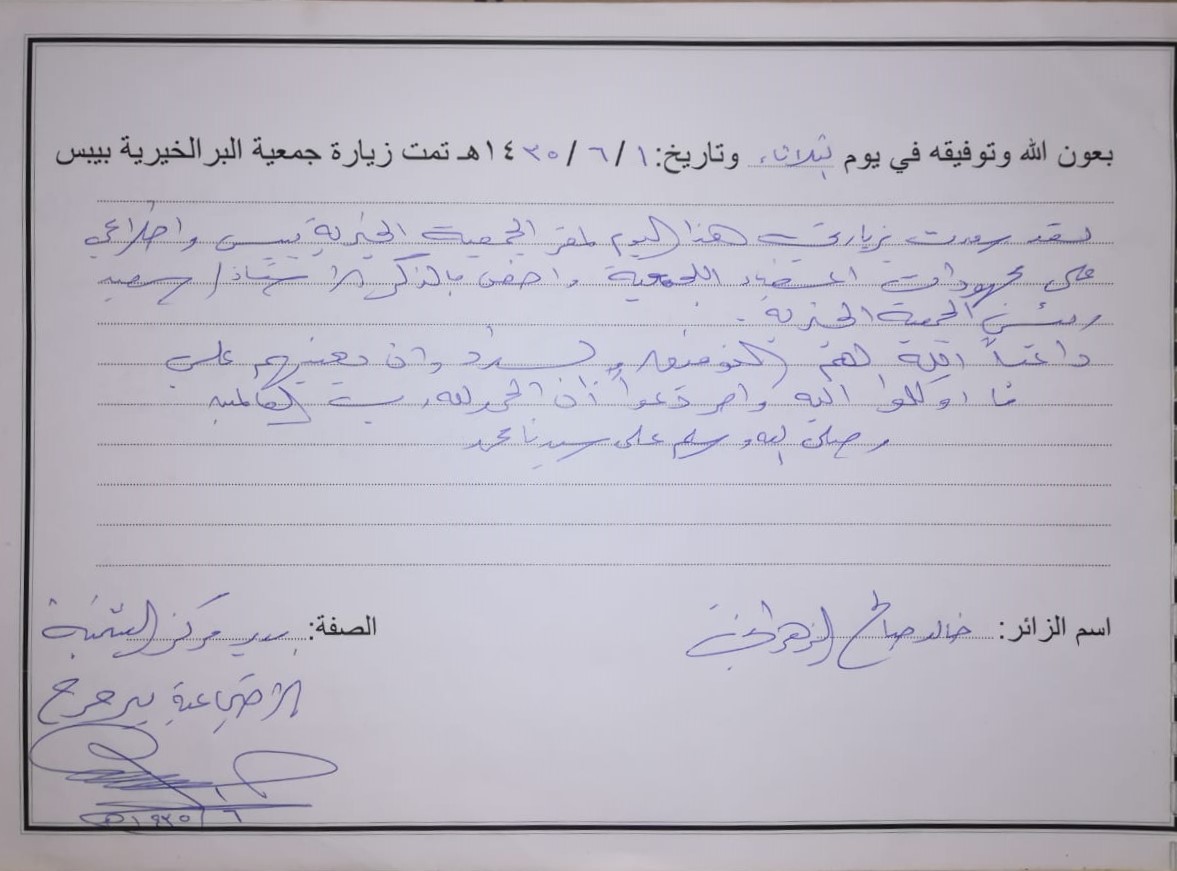 بعون الله وتوفيقه في يوم الثلاثاء وتاريخ: ١ / ٦ / ١٤٣٥هـ تمت زيارة جمعية البر الخيرية بيبس
لقد سررت بزيارتي هذا اليوم لمقر الجمعية الخيرية بيبس واطلاعي
على مجهودات اعضاء اللجمعية واخص بالذكر الاستاذ / سعيد
رئيس الجمعية الخيرية .
داعياً لهم التوفيق والسداد وان يعينهم على
ما اوكلوا اليه واخر دعوانا أن الحمد لله رب العالمين
وصلى الله وسلم على سيدنا محمد
اسم الزائر: خالد صالح الزهراني
الصفة: مدير مركز التنمية
الاجتماعية
١٤٣٥/٦/١هـ